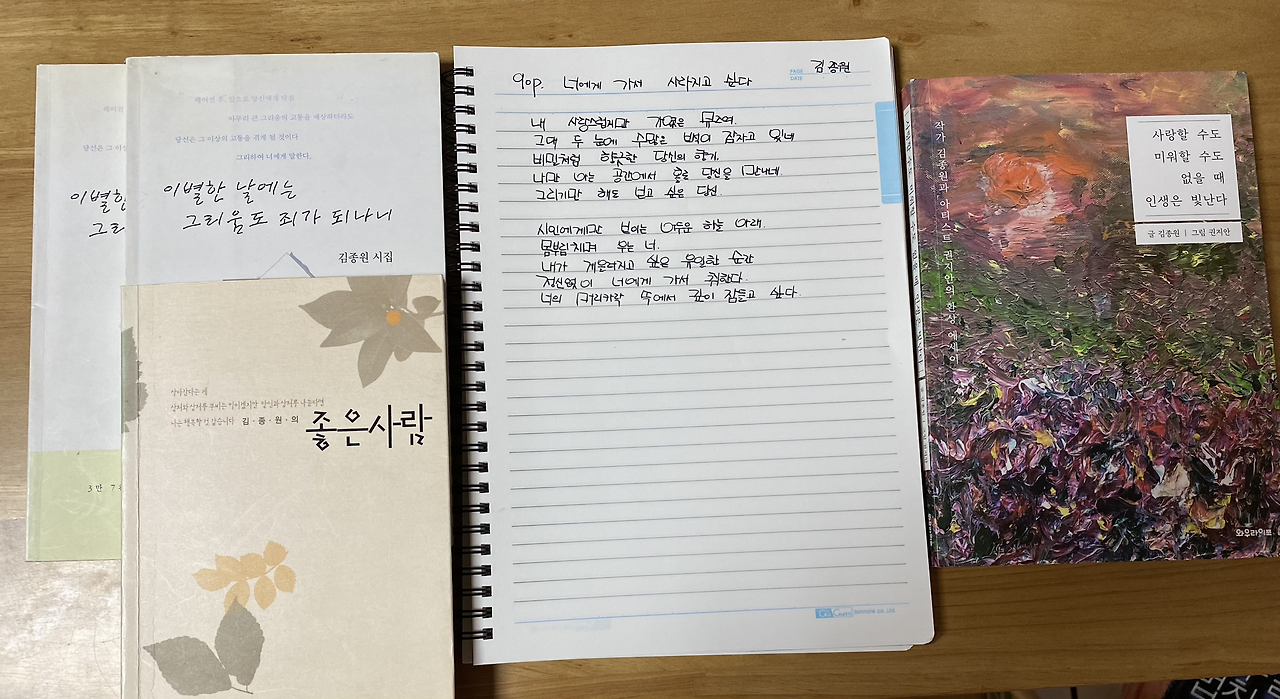 이별한
그리
3만
헤어진 후, 앞으로 당신에게 닥칠
아무리 큰 그리움의 고통을 예상하더라도
당신은 그 이상의 고통을 겪게 될 것이다
그리하여 너에게 말한다.
이별한 날에는
그리움도 죄가 되나니
김종원 시집
살아있다는 게
나는 행복할 것 같습니다
김·종·원·의
좋은사람
PAGE
DATE
김종원
90p. 너에게 가서 사라지고 싶다
내 사랑스럽지만
그대 두 눈에 수많은 별빛이 잠자고 있네
비밀처럼 향긋한 당신의 향기.
나만 아는 공간에서 홀로 당신을 만나네
그리기만 해도 벅고 싶은 당신
시인에게만 보이는 어두운 하늘 아래.
몸부림치며 우는 너.
내가 게을러지고 싶은 유일한 순간
정신없이 너에게 가서 취한다.
너의 머리카락 속에서 깊이 잠들고 싶다.
작가 김종원과 아티스트 권지안의 환상 에세이
사랑할 수도
미워할 수도
없을 때
인생은 빛난다
글 김종원 | 그림 권지안
와우라이프